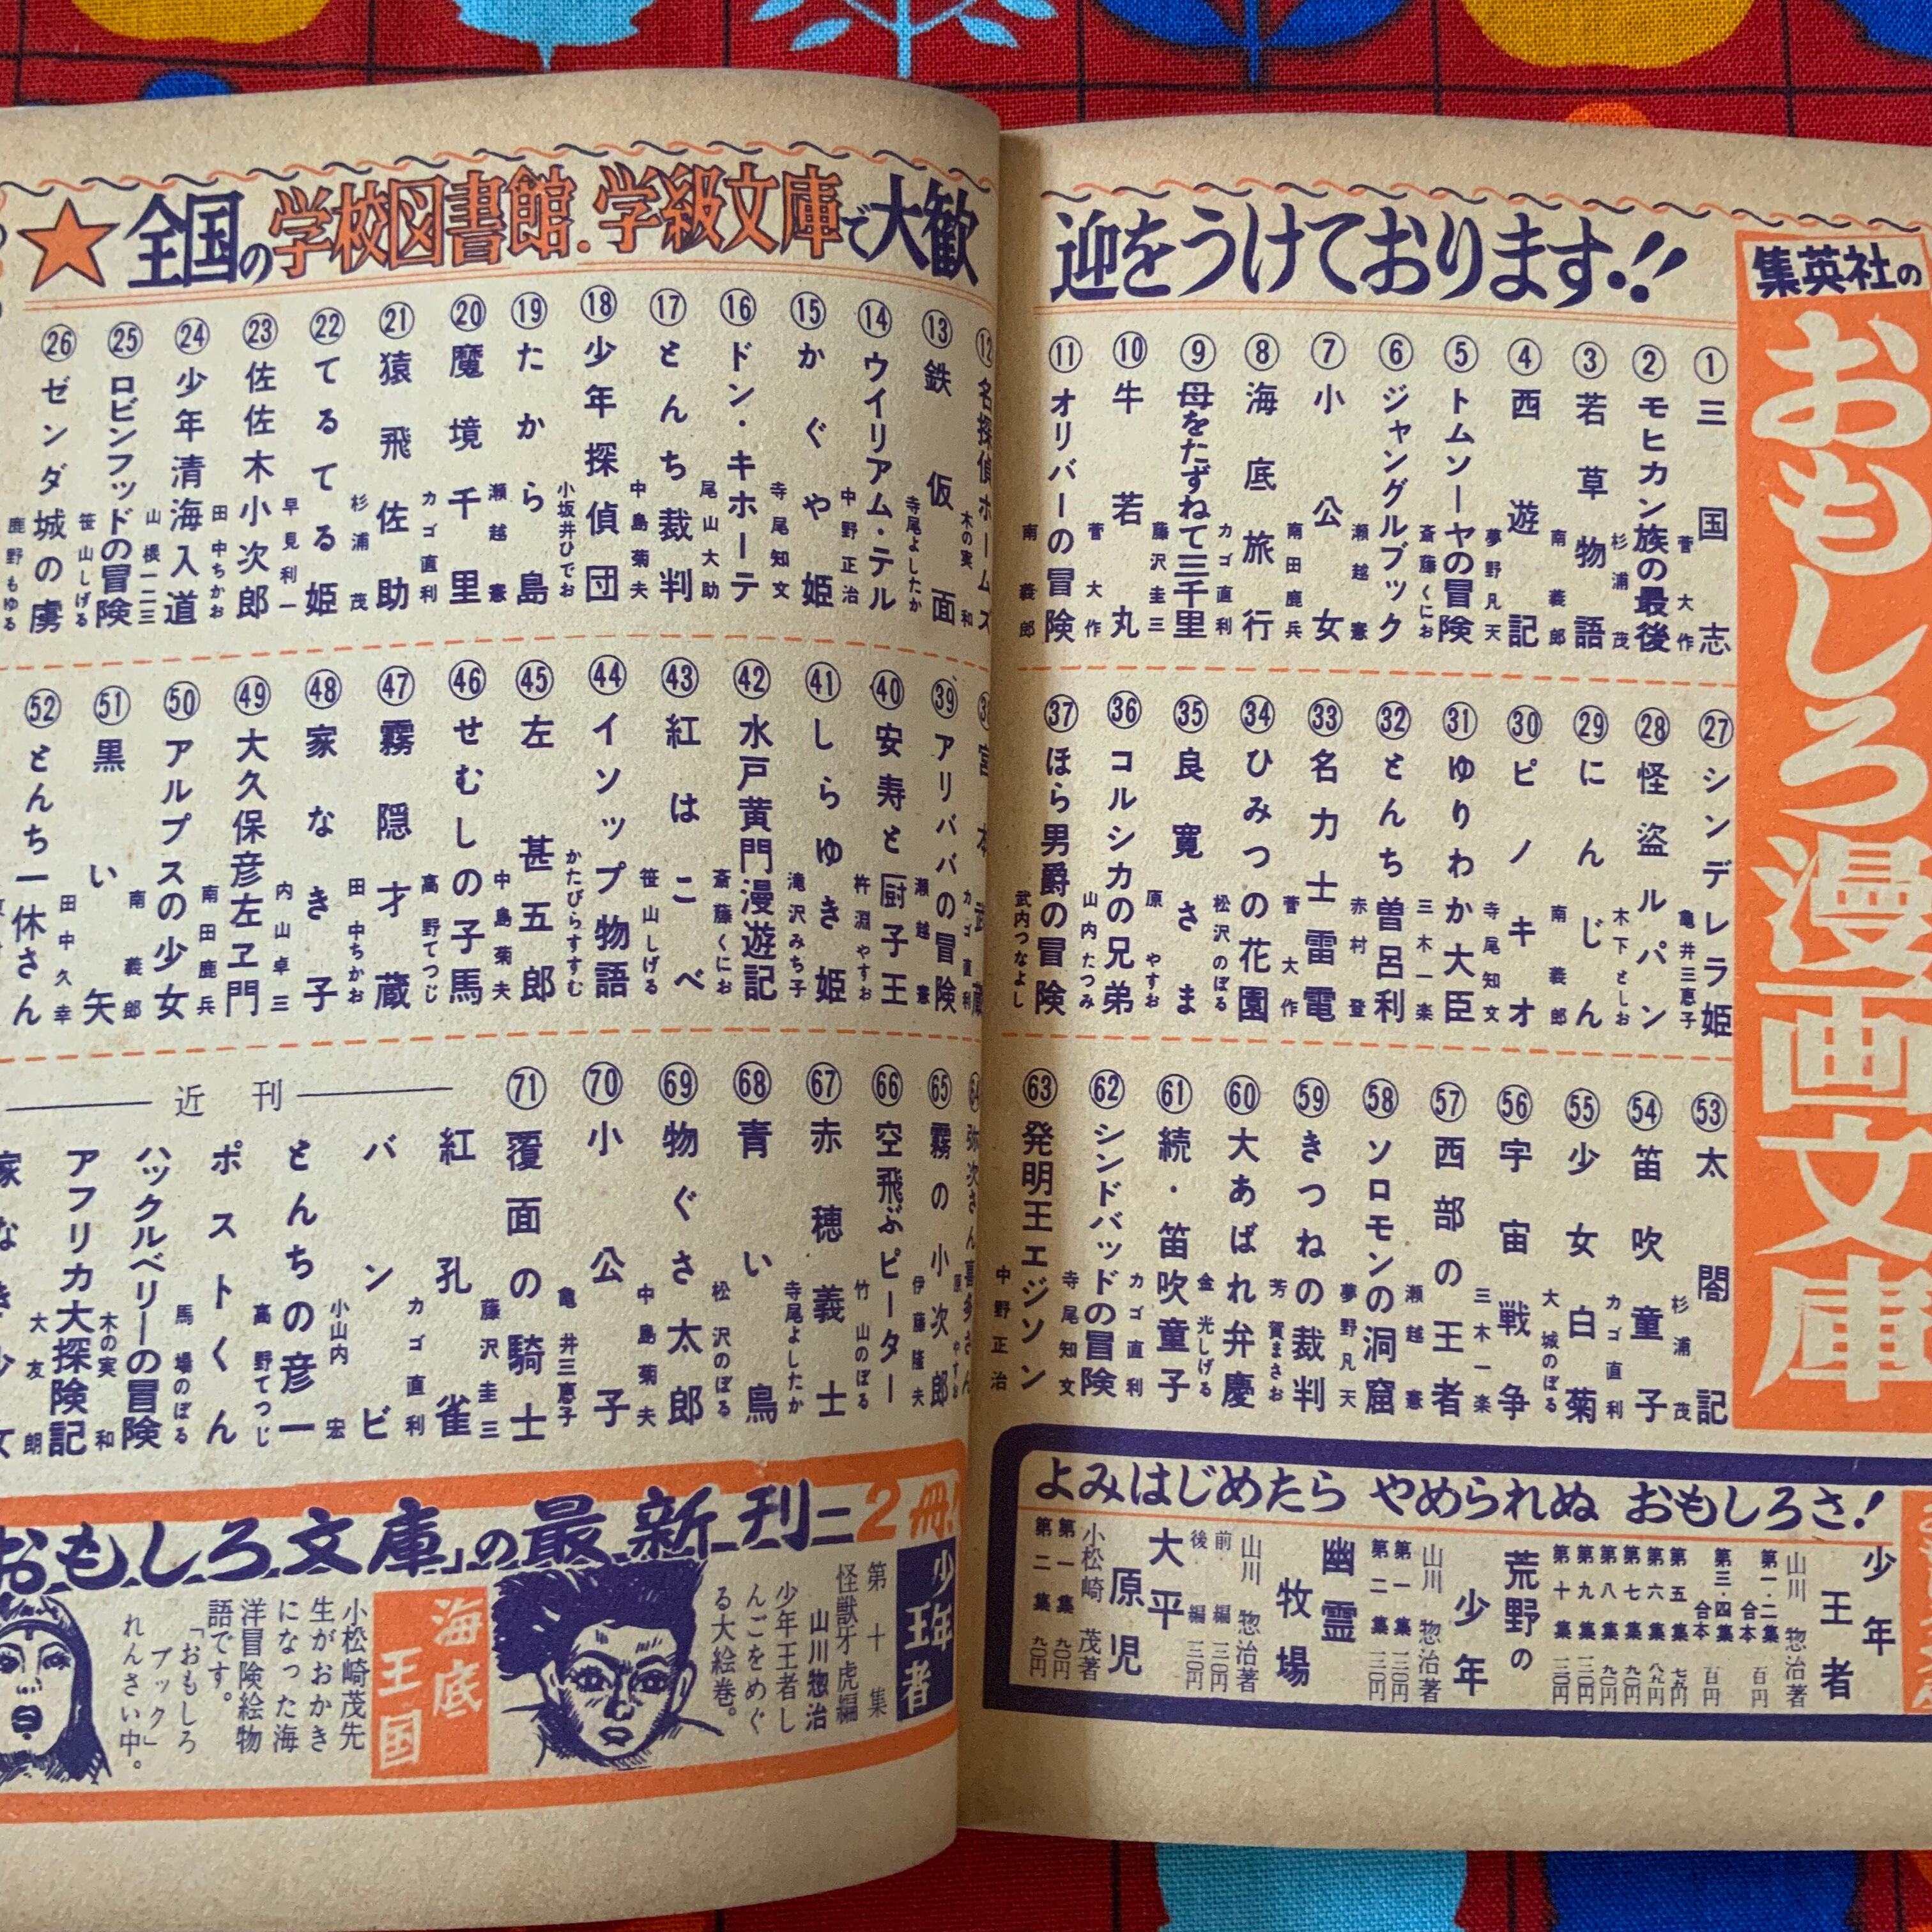 集英社の
おもしろ漫画文庫
★全国の学校図書館.学級文庫で大歓迎をうけております!!
①三国志 菅大作
②モヒカン族の最後 杉浦茂
③若草物語 南義郎
④西遊記 夢野凡天
⑤トムソーヤの冒険 斎藤くにお
⑥ジャングルブック 瀬越憲
⑦小公女 南田鹿兵
⑧海底旅行 カゴ直利
⑨母をたずねて三千里 藤沢圭三
⑩牛若丸 菅大作
⑪オリバーの冒険 南義郎
⑫名探偵ホームズ 木の実和
⑬鉄仮面 寺尾よしたか
⑭ウイリアム・テル 中野正治
⑮かぐや姫 寺尾知文
⑯ドン・キホーテ 尾山大助
⑰とんち裁判 中島菊夫
⑱少年探偵団 小坂井ひでお
⑲たから島 瀬越憲
⑳魔境千里 カゴ直利
㉑猿飛佐助 杉浦茂
㉒てるてる姫 早見利一
㉓佐佐木小次郎 田中ちかお
㉔少年清海入道 山根一二三
㉕ロビンフッドの冒険 笹山しげる
㉖ゼンダ城の虜 鹿野もゆる
㉗シンデレラ姫 亀井三恵子
㉘怪盗ルパン 木下としお
㉙にんじん 南義郎
㉚ピノキオ 寺尾知文
㉛ゆりわか大臣 三木一楽
㉜とんち曽呂利 赤村登
㉝名力士雷電 菅大作
㉞ひみつの花園 松沢のぼる
㉟良寛さま 原やすお
㊱コルシカの兄弟 山内たつみ
㊲ほら男爵の冒険 武内つなよし
宮本武蔵 カゴ直利
㊴アリババの冒険 瀬越憲
㊵安寿と厨子王 杵淵やすお
㊶しらゆき姫 滝沢みち子
㊷水戸黄門漫遊記 斎藤くにお
㊸紅はこべ 笹山しげる
㊹イソップ物語 かたびらすすむ
㊺左甚五郎 中島菊夫
㊻せむしの子馬 高野てつじ
㊼霧隠才蔵 田中ちかお
㊽家なき子 内山卓三
㊾大久保彦左ヱ門 南田鹿兵
㊿アルプスの少女 南義郎
51黒い矢 田中久幸
52とんち一休さん
53太閤記 杉浦茂
54笛吹童子 カゴ直利
55少女白菊 大城のぼる
56宇宙戦争 三木一楽
57西部の王者 瀬越憲
58ソロモンの洞窟 夢野凡天
59きつねの裁判 芳賀まさお
60大あばれ弁慶 金光しげる
61続・笛吹童子 カゴ直利
62シンドバッドの冒険 寺尾知文
63発明王エジソン 中野正治
64弥次さん喜多さん 原やすお
65霧の小次郎 伊藤隆夫
66空飛ぶピーター 竹山のぼる
67赤穂義士 寺尾よしたか
68青い鳥 松沢のぼる
69物ぐさ太郎 中島菊夫
70小公子 亀井三恵子
71覆面の騎士 藤沢圭三
近刊
紅孔雀 カゴ直利
バンビ 小山内宏
とんちの彦一 高野てつじ
ポストくん 馬場のぼる
ハックルベリーの冒険 木の実和
アフリカ大探険記 大友朗
家なき少女
よみはじめたら やめられぬ おもしろさ!
少年王者 山川惣治著
第一・二集合本 百円
第三・四集合本 百円
第五集 七〇円
第六集 八五円
第七集 九〇円
第八集 九〇円
第九集 一三〇円
第十集 一三〇円
荒野の少年 山川惣治著
第一集 一三〇円
第二集 一三〇円
幽霊牧場 山川惣治著
前編 一三〇円
後編 一三〇円
大平原児 小松崎茂著
第一集 九〇円
第二集 九〇円
おもしろ文庫」の最新刊=2冊!
少年王者
第十集
怪獣牙虎編
山川惣治
少年王者し
んごをめぐ
る大絵巻。
海底王国
小松崎茂先
生がおかき
になった海
洋冒険絵物
語です。
「おもしろ
ブック」
れんさい中。